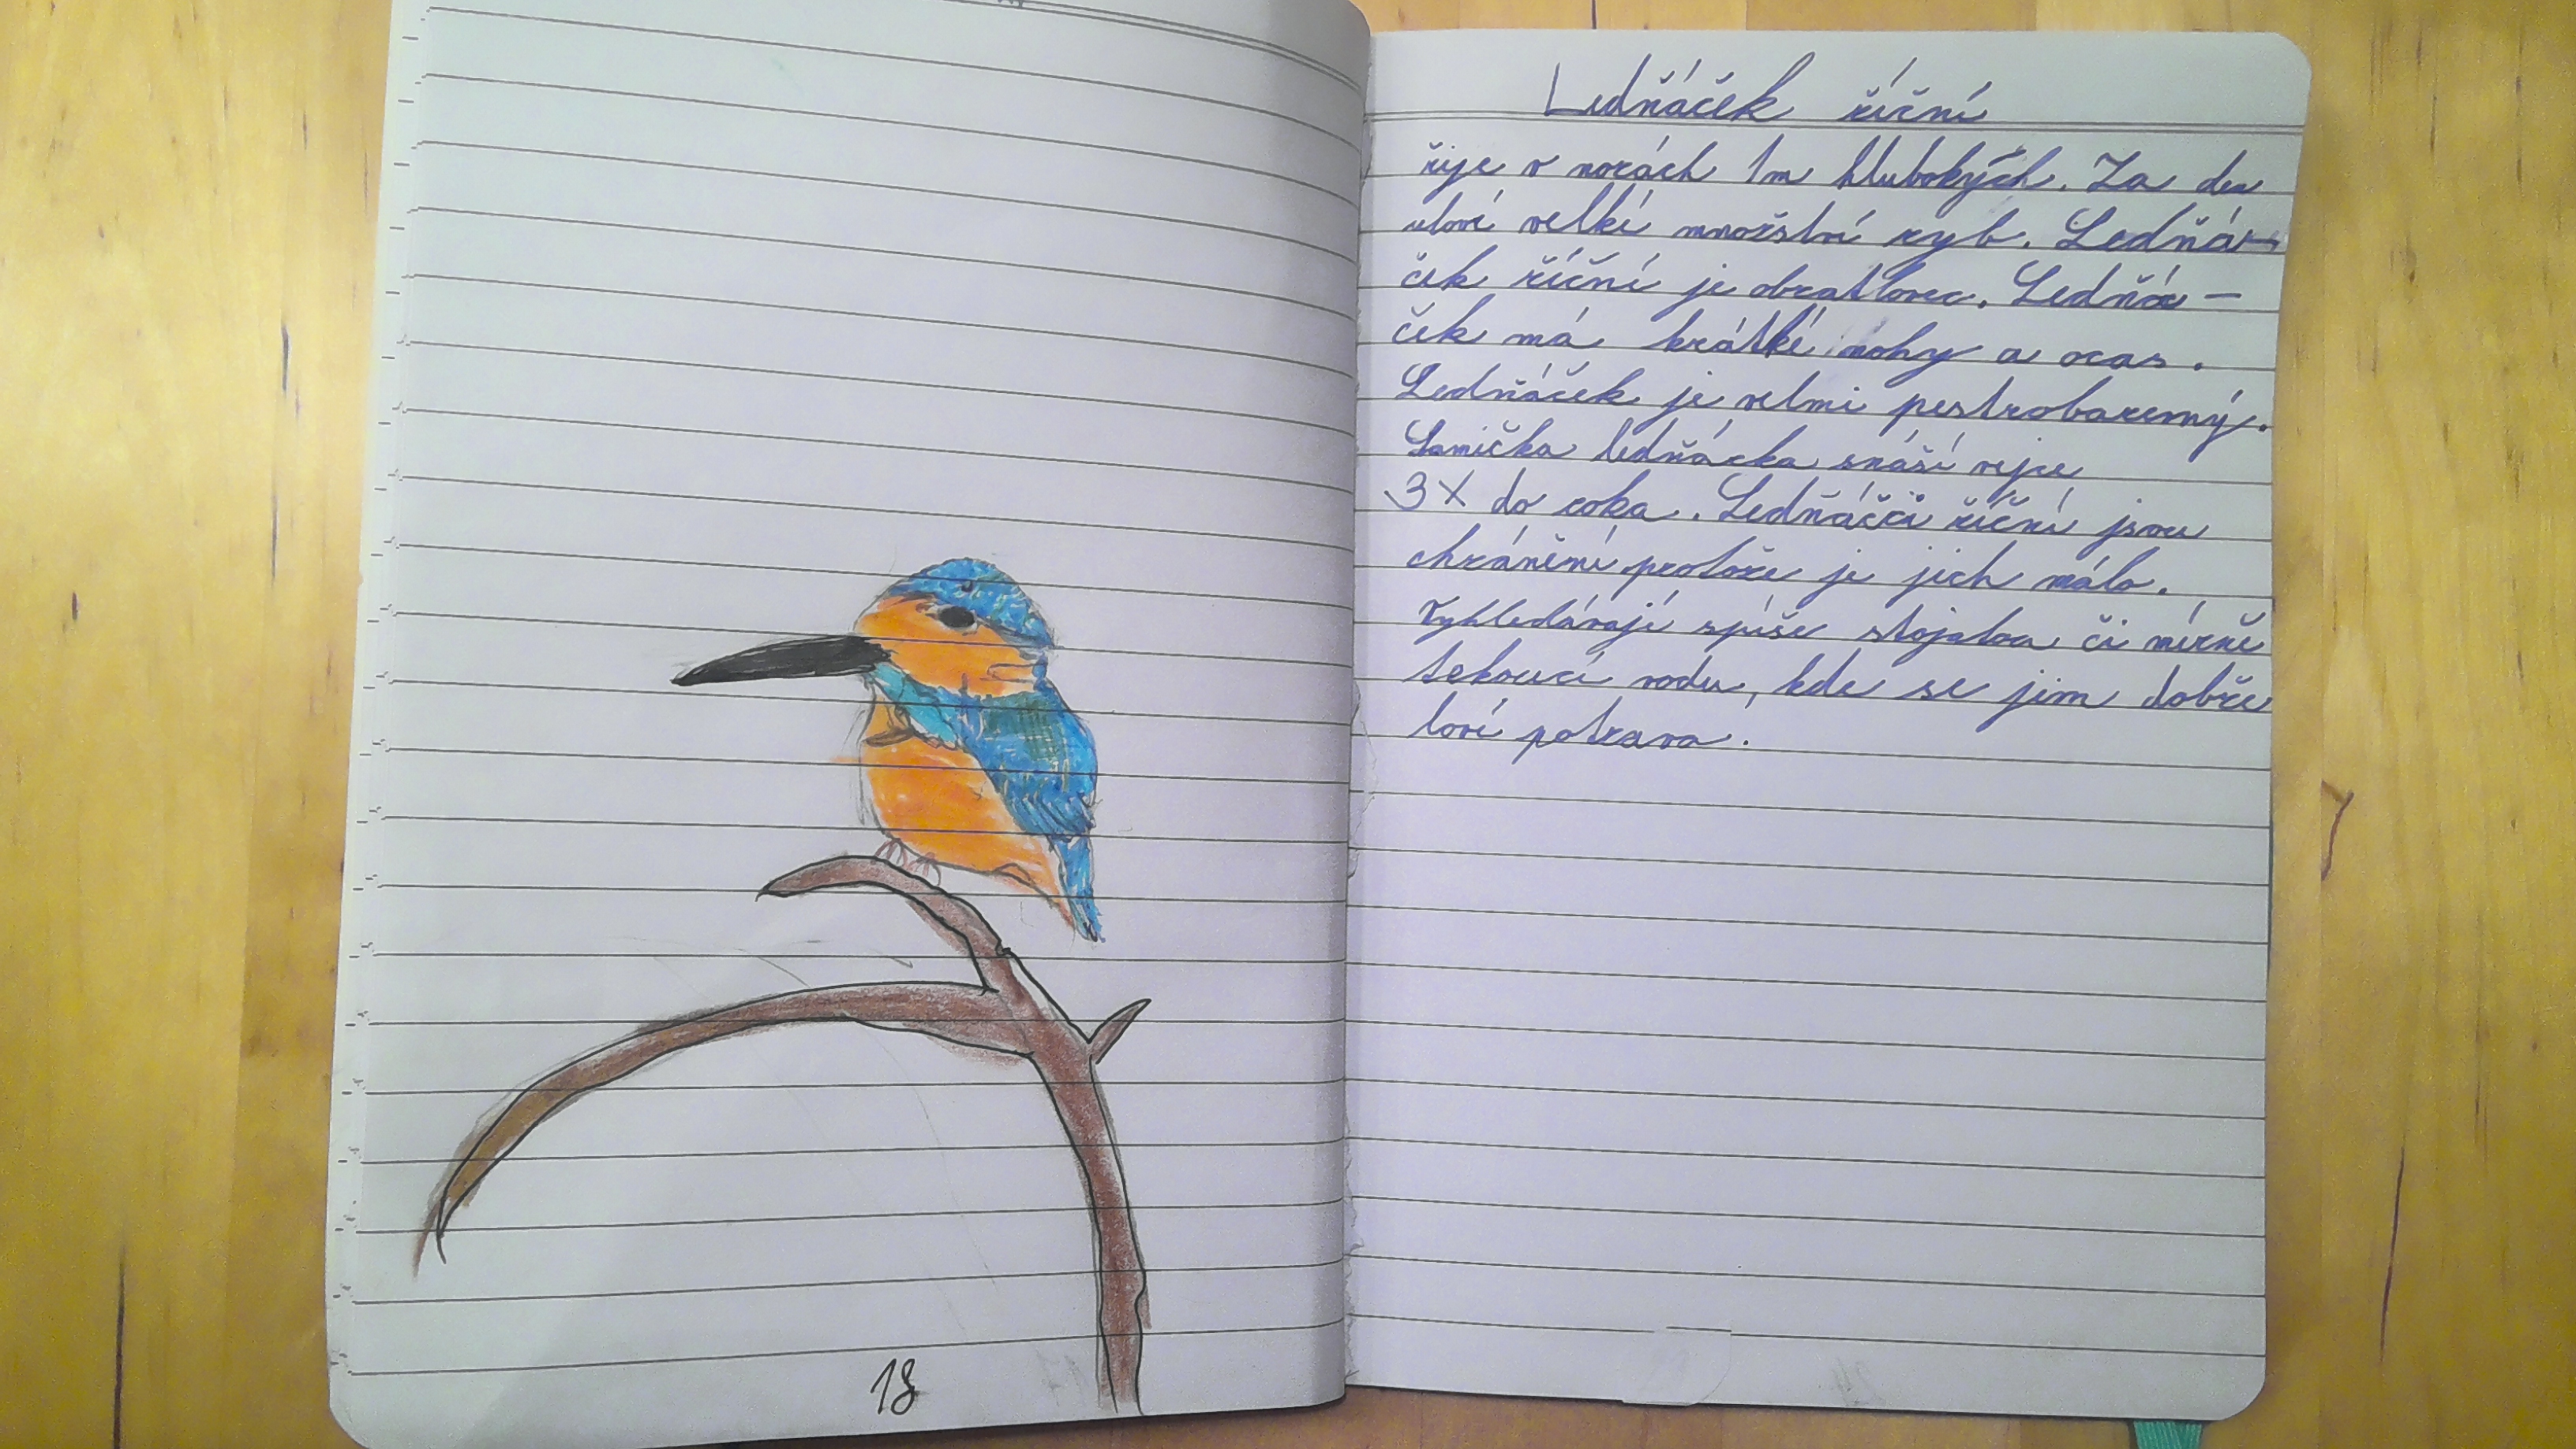 Ledňáček říční
žije v norách 1m hlubokých. Za den
uloví velké množství ryb. Ledňá-
ček říční je obratlovec. Ledňá-
ček má krátké nohy a ocas.
Ledňáček je velmi pestrobarevný.
Samička ledňáčka snáší vejce
3X do roka. Ledňáčči říční jsou
chráněni protože je jich málo.
Vyhledávají spíše stojatou či mírně
tekoucí vodu, kde se jim dobře
loví potrava.
18